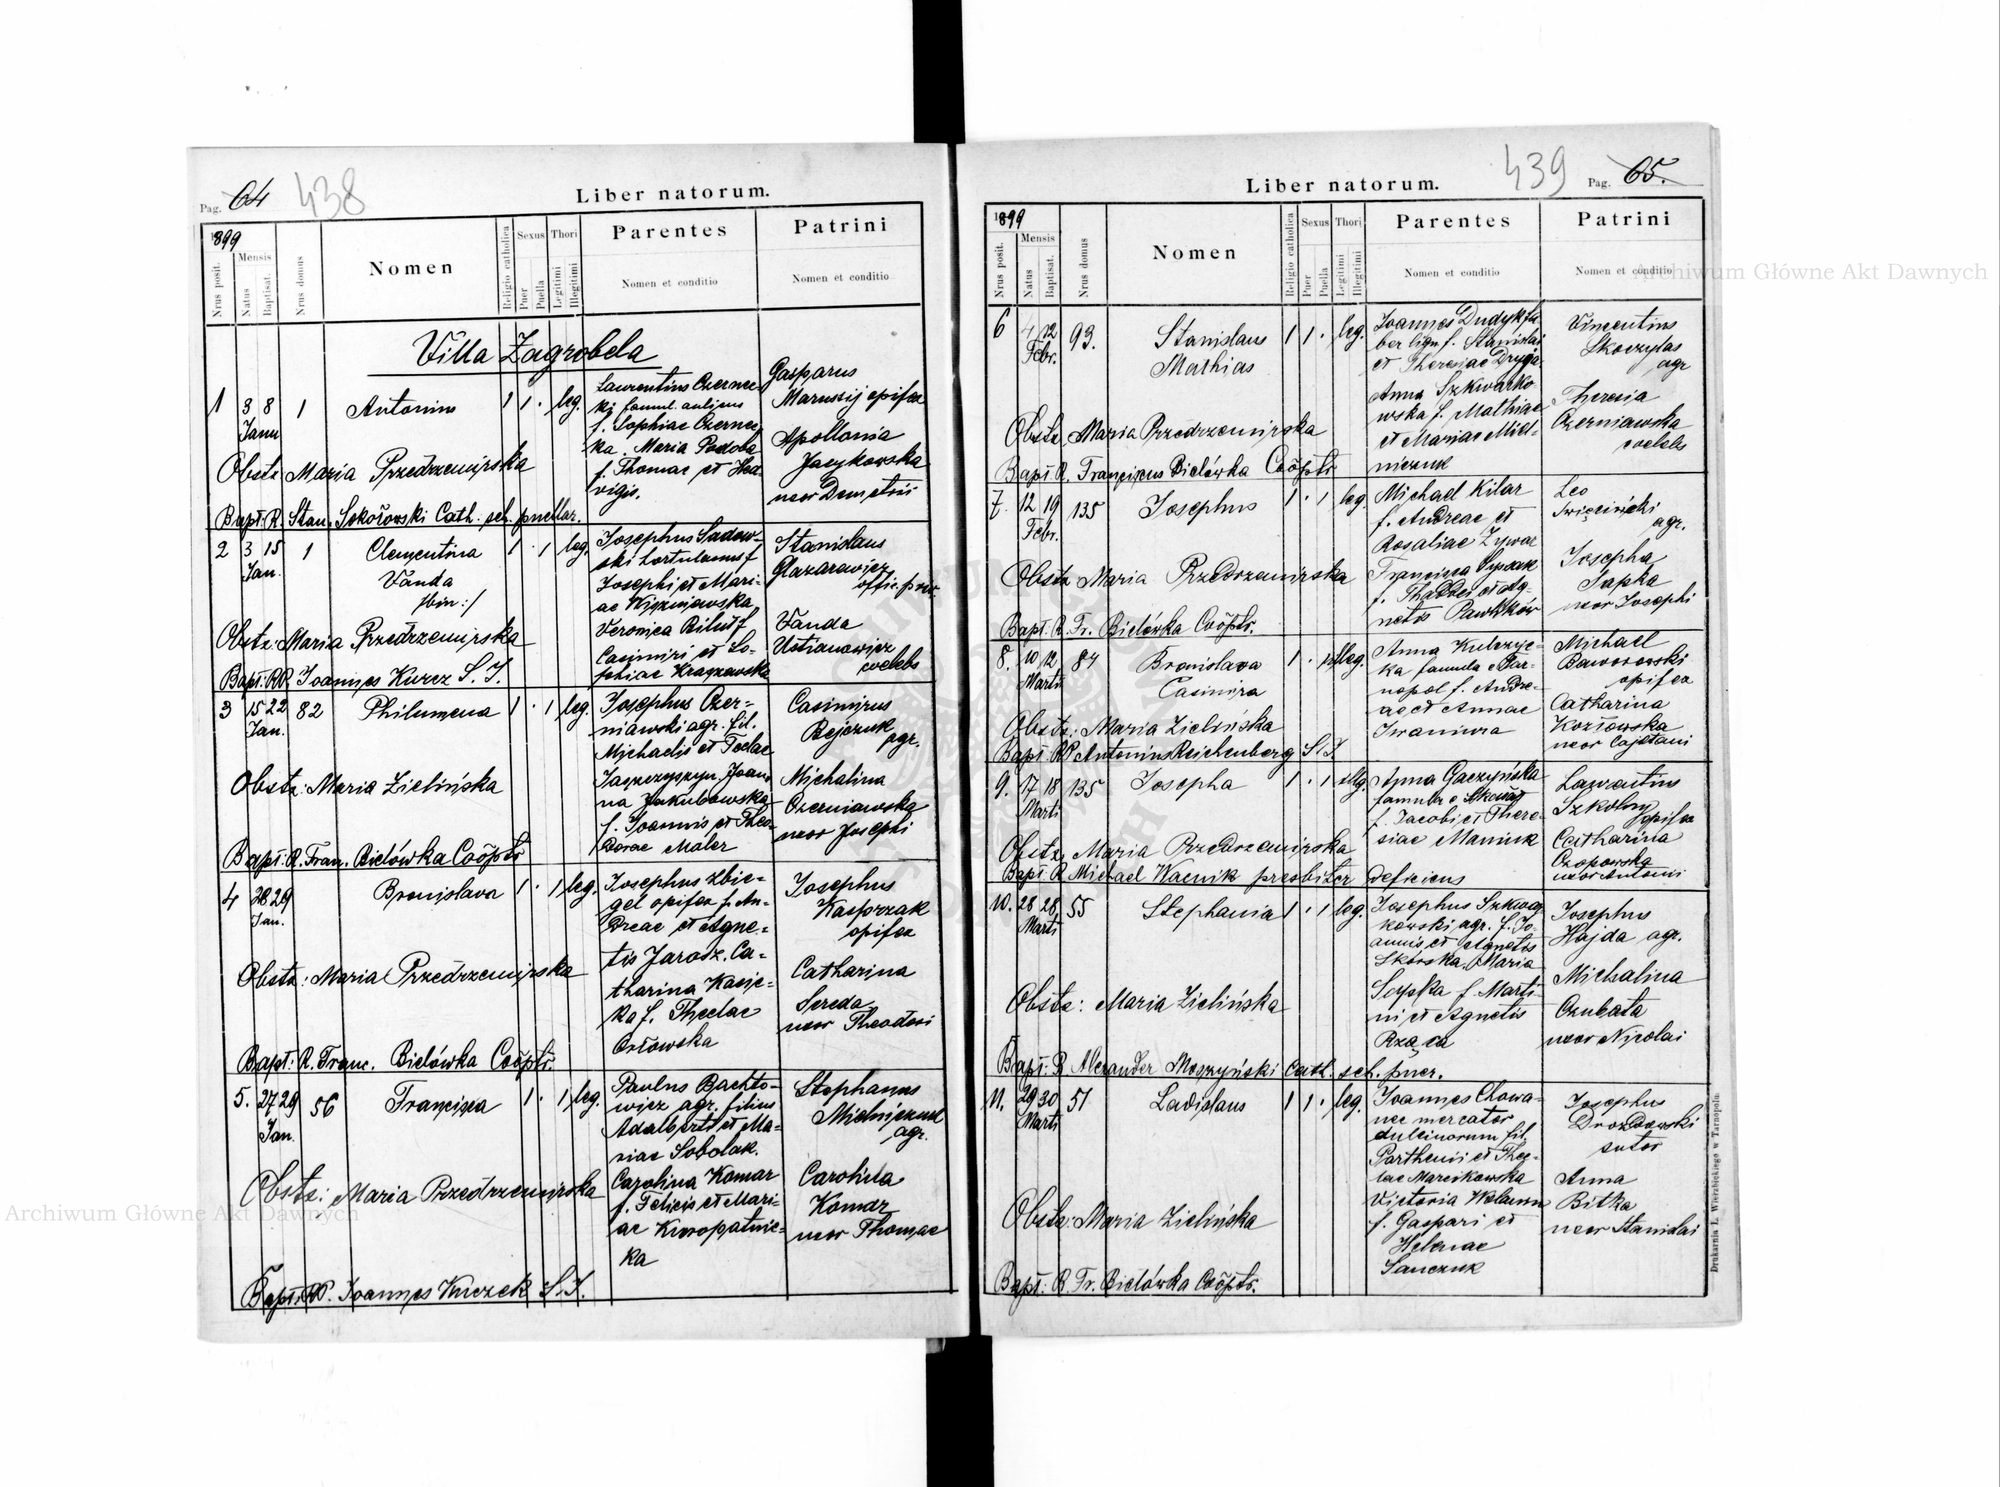 Pag. 64 438
Liber natorum.
1899
Nrus posit.
Mensis
Natus
Baptisat.
Nrus domus
Nomen
Religio catholica
Sexus
Puer
Puella
Thori
Legitimi
Illegitimi
Parentes
Nomen et conditio
Patrini
Nomen et conditio
Villa Zagrobela
1 3 8 1 Antonius 1 1 . leg.
Janu
Laurentius Czernec-
ki famul. aulicus
f. Sophiae Czernec-
ka. Maria Podoba
f. Thomae et Hed-
vigis.
Gasparus
Marussij opifex
Apollonia
Jacykowska
uxor Demetrii
Obstz: Maria Przedrzemirska
Bapt: R. Stan. Sokołowski Cath. sch. puellar.
2 3 15 1 Clementina 1 . 1 leg.
Jan.
Vanda
/bin:/
Josephus Sadow-
ski hortulanus f
Josephi et Mari-
ae Wiszniowska
Veronica
Casimiri et So-
phiae Kraszewska
Stanislaus
Glazarawicz
offic. priv.
Vanda
Ustianowicz
coelebs
Obstz: Maria Przedrzemirska
Bapt: RP. Joannes Kurcz S. J.
3 15 22 82 Philumena 1 . 1 leg.
Jan.
Josephus Czer-
niawski agr. fil.
Michaelis et Teclae
Joan-
na Jakubowska
f. Joannis et Theo-
dorae Maler
Casimirus
Bejczuk
agr.
Michalina
Czerniawska
uxor Josephi
Obstz: Maria Zielińska
Bapt: R. Fran. Bielówka Coöptr
4 28 29 Bronislava 1 . 1 leg.
Jan.
Josephus Zbie-
gel opifex f. An-
dreae et Agne-
tis Jarosz. Ca-
tharina Kasie-
ka f. Theclae
Orłowska
Josephus
Kasprzak
opifex
Catharina
Sereda
uxor Theodosi
Obstz: Maria Przedrzemirska
Bapt: R. Franc. Bielówka Coöptr.
5. 27 29 56 Francisca 1 . 1 leg.
Jan.
Paulus Bachto-
wicz agr. filius
Adalberti et Ma-
riae Sobolak.
Carolina Komar
f. Felicis et Mari-
ae Kuropatnic-
ka
Stephanus
Mielniczuk
agr.
Carolina
Komar
uxor Thomae
Obstz: Maria Przedrzemirska
Bapt: RP. Joannes Kurczek S. J.
Liber natorum.
439 Pag. 65.
1899
Nrus posit.
Mensis
Natus
Baptisat.
Nrus domus
Nomen
Religio catholica
Sexus
Puer
Puella
Thori
Legitimi
Illegitimi
Parentes
Nomen et conditio
Patrini
Nomen et conditio
6 4 12 93. Stanislaus 1 1 . leg.
Febr.
Mathias
Joannes Dudyk fa-
ber lign. f. Stanislai
et Theresiae Dryja
Anna Szkwarko-
wska f. Mathiae
et Mariae Miel-
niczuk
Vincentius
Skoczylas
agr
Theresia
Czerniawska
coelebs
Obstz. Maria Przedrzemirska
Bapt. R. Franciscus Bielówka Coöptr
7. 12 19 135 Josephus 1 . 1 leg.
Febr.
Michael Kilar
f. Andreae et
Rosaliae Zywar
Francisca Sysak
f. Thaddei et Ag-
netis Pawłków
Leo
Święcicki
agr.
Josepha
Sapka
uxor Josephi
Obstz Maria Przedrzemirska
Bapt. R. Fr. Bielówka Coöptr.
8. 10 12 84 Bronislava 1 . illeg.
Martii
Casimira
Anna Kulczyc-
ka famula e Tar-
nopol f. Andre-
ae et Annae
Iwaniwra
Michael
Baworowski
opifex
Catharina
Kozłowska
uxor Cajetani
Obstz: Maria Zielińska
Bapt: RP Antonius Reichenberg S. J.
9. 17 18 135 Josepha 1 . 1 illeg.
Marti
Anna Gaczyńska
famula e
f. Jacobi et There-
siae Maniuk
Laurentius
Szkolny
opifex
Catharina
Czopowska
uxor Antonii
Obstz. Maria Przedrzemirska
Bapt. R Michael Wacnik presbiter deficiens
10. 28 28 55 Stephania 1 . 1 leg.
Marti
Josephus Szkwar-
kowski agr. f. Jo-
annis et Agnetis
Skórska, Maria
f. Marti-
ni et Agnetis
Rząca
Josephus
Hajda agr.
Michalina
Czubata
uxor Nicolai
Obstz: Maria Zielińska
Bapt: R Alexander Moszyński Cath. sch. puer.
11. 29 30 51 Ladislaus 1 1 . leg.
Marti
Joannes Chowa-
nec mercator
dulcinorum fil.
Parthenii et Thec-
lae Marcikowska
Victoria
f. Gaspari et
Helenae
Sanczuk
Josephus
Drozdowski
sutor
Anna
Bitka
uxor Stanislai
Obstz: Maria Zielińska
Bapt: R. Fr. Bielówka Coöptr.
Drukarnia L. Wierzbickiego w Tarnopolu.
Archiwum Główne Akt Dawnych
Archiwum Główne Akt Dawnych